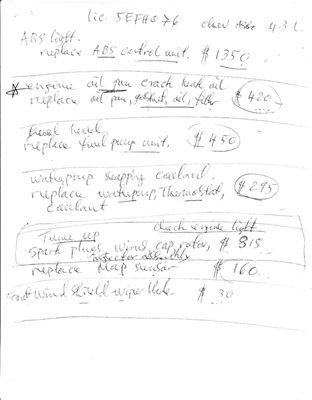 lic 5EFH076 chev Astro 4.3 L
ABS light.
replace ABS control unit. $1350
engine oil pan crack leak oil
replace oil pan, gasket, oil, filter $420
level
replace fuel pump unit. $450
water pump seapping coolant.
replace water pump, Thermostat, $295
coolant
Tune up check engine light
spark plugs, wires, cap rotor, $815
replace Map sensor $160
front wind shield wiper $30